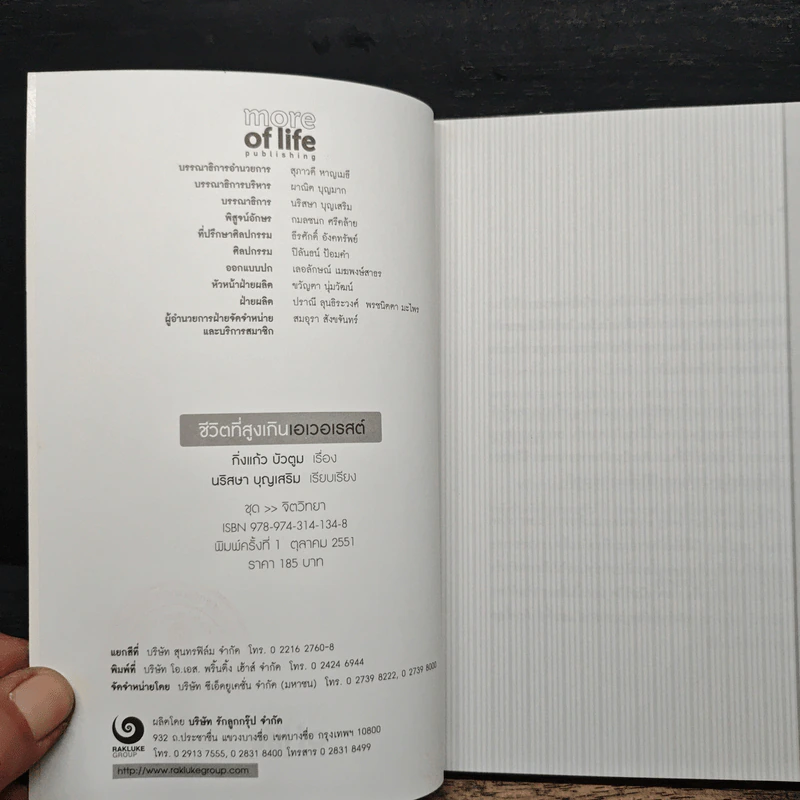 more
of life
publishing
บรรณาธิการอำนวยการ สุภาวดี หาญเมธี
บรรณาธิการบริหาร ผาณิต บุญมาก
บรรณาธิการ นริสษา บุญเสริม
พิสูจน์อักษร กมลชนก ศรีคล้าย
ที่ปรึกษาศิลปกรรม ธีรศักดิ์ อังคทรัพย์
ศิลปกรรม ปิลันธน์ ป้อมคำ
ออกแบบปก เลอลักษณ์ เมฆพงษ์สาธร
หัวหน้าฝ่ายผลิต ขวัญตา นุ่มวัฒน์
ฝ่ายผลิต ปราณี ลุนธิระวงศ์ พรชนิตตา มะไพร
ผู้อำนวยการฝ่ายจัดจำหน่าย สมอุรา สังขจันทร์
และบริการสมาชิก
ชีวิตที่สูงเกินเอเวอเรสต์
กิ่งแก้ว บัวตูม เรื่อง
นริสษา บุญเสริม เรียบเรียง
ชุด >> จิตวิทยา
ISBN 978-974-314-134-8
พิมพ์ครั้งที่ 1 ตุลาคม 2551
ราคา 185 บาท
แยกสีที่ บริษัท สุนทรฟิล์ม จำกัด โทร. 0 2216 2760-8
พิมพ์ที่ บริษัท โอ.เอส. พริ้นติ้ง เฮ้าส์ จำกัด โทร. 0 2424 6944
จัดจำหน่ายโดย บริษัท ซีเอ็ดยูเคชั่น จำกัด (มหาชน) โทร. 0 2739 8222, 0 2739 8000
RAKLUKE
GROUP
ผลิตโดย บริษัท รักลูกกรุ๊ป จำกัด
932 ถ.ประชาชื่น แขวงบางซื่อ เขตบางซื่อ กรุงเทพฯ 10800
โทร. 0 2913 7555, 0 2831 8400 โทรสาร 0 2831 8499
http://www.raklukegroup.com